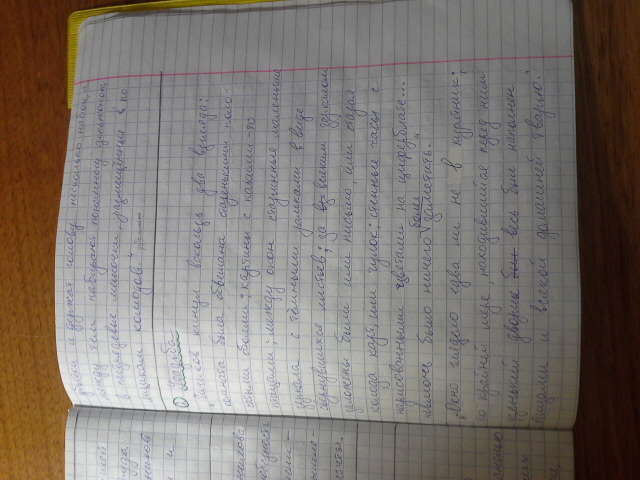 и держат голову несколько набок, а
между тем набирают понемногу деньжонок
в пестрядевые мешочки, размещенные по
ящикам комодов."
Усадьба
"Чичиков кинул вскользь два взгляда:
комната была обвешана старенькими поло-
сатыми обоями; картины с какими-то
птицами; между окон старинные маленькие
зеркала с темными рамками в виде
свернувшихся листьев; за всяким зеркалом
заложены были или письмо, или старая
колода карт, или чулок; стенные часы с
нарисованными цветами на циферблате...
было ничего более заметить."
"Окно глядело едва ли не в курятник;
по крайней мере, находившийся перед ним
узенький дворик был весь был наполнен
птицами и всякой домашней тварью."